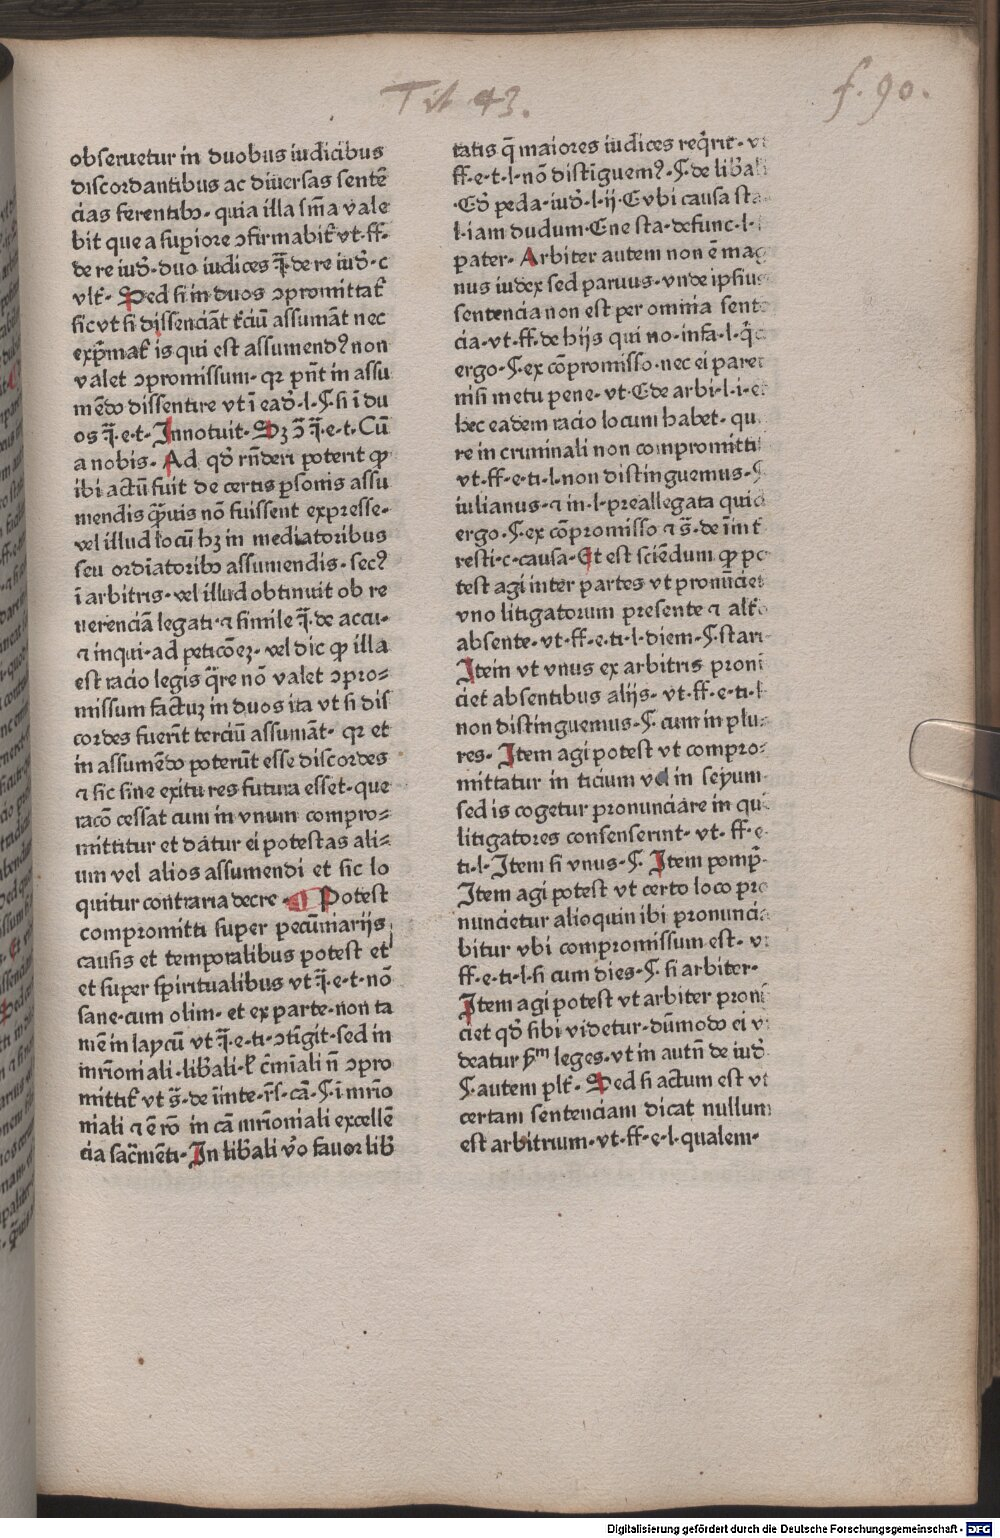 Tit 43.
f. 90.
obseruetur in duobus iudicibus
discordantibus ac diuersas sentē
cias ferentibꝰ· quia illa sm̄a vale
bit que a supiore ↄfirmabit᷑ vt·ff·
de re iud̄·duo iudices q̄·de re iud̄·c
vlt᷑· Sed si in duos ↄpromittat᷑
sic vt si dissenciāt t᷑ciū assumāt nec
exp̄mat᷑ is qui est assumendꝰ non
valet ↄpromissum· qr pn̄t in assu
mēdo dissentire vt ī ead̄·l·§·si ī du
os q̄·e·t·Innotuit·Sꝫ ↄ̄ q̄·e·t·Cū
a nobis· Ad qd̄ rn̄deri poterit ꝙ
ibi actū fuit de certis ꝑsonis assu
mendis q̄uis nō fuissent expresse·
vel illud locū hꝫ in mediatoribus
seu ordīatoribꝰ assumendis·secꝰ
ī arbitris·vel illud obtinuit ob re
uerenciā legati·⁊ simile q̄·de accu·
⁊ inqui·ad peticōeꝫ· vel dic ꝙ illa
est racio legis q̄re nō valet ↄpro⸗
missum factuꝫ in duos ita vt si dis
cordes fuerīt terciū assumāt· qr et
in assumēdo poterūt esse discordes
⁊ sic sine exitu res futura esset·que
racō cessat cum in vnum compro⸗
mittitur et datur ei potestas ali⸗
um vel alios assumendi et sic lo
quitur contraria decre· Potest
compromitti super pecūniarijs
causis et temporalibus potest et
et super spiritualibus vt q̄·e·t·nō
sane·cum olim· et ex parte·non ta
mē in laycū vt q̄·e·ti·ↄtīgit·sed in
mr̄ioniali·lib̄ali·l᷑ c̄mīali n̄ ↄpro
mittit᷑ vt s̄·de īinte·rīs·cā·§·ī mr̄io
niali ⁊ ē rō in cā mr̄ioniali excellē
cia sac̄mēti·In lib̄ali v̄o fauor lib̄
tatis q̄ maiores iudices req̄rit· vt
ff·e·t·l·nō distīguemꝰ·§·de libali
·C·d̄ peda·iud̄·l·ij·C·vbi causa sta
l·iam dudum·C·ne sta·defunc·l·
pater· Arbiter autem non ē mag
nus iudex sed paruus·vnde ipsius
sentencia non est per omnia sentē
cia·vt·ff·de hijs qui no·infa·l·q̄
ergo·§·ex cōpromisso·nec ei paret
nisi metu pene·vt·C·de arbi·l·i·et
hec eadem racio locum habet· qu
re in criminali non compromitti
vt·ff·e·ti·l·non distinguemus·§
iulianus·⁊ in·l·preallegata quid
ergo·§·ex cōpromisso ⁊ s̄·de īint᷑
resti·c·causa·Et est sciēdum ꝙ po
test agi inter partes vt pronūciet
vno litigatorum presente ⁊ alt᷑o
absente·vt·ff·e·ti·l·diem·§·stari
Item vt vnus ex arbitris pronū
ciet absentibus alijs· vt·ff·e·ti·l
non distinguemus·§·cum in plu⸗
res· Item agi potest vt compro⸗
mittatur in ticium vel in seyum
sed is cogetur pronunciare in quē
litigatores consenserint· vt· ff·e·
ti·l·Item si vnus·§· Item pomp̄·
Item agi potest vt certo loco pro
nuncietur alioquin ibi pronuncia
bitur vbi compromissum est· vt
ff·e·ti·l·si cum dies·§·si arbiter·
Item agi potest vt arbiter pronū
ciet qd̄ sibi videtur·dūmodo ei vi
deatur ẜm leges·vt in autn̄ de iud̄
§·autem plt᷑·Sed si actum est vt
certam sentenciam dicat nullum
est arbitrium·vt·ff·e·l·qualem·
Digitalisierung gefördert durch die Deutsche Forschungsgemeinschaft - DFG